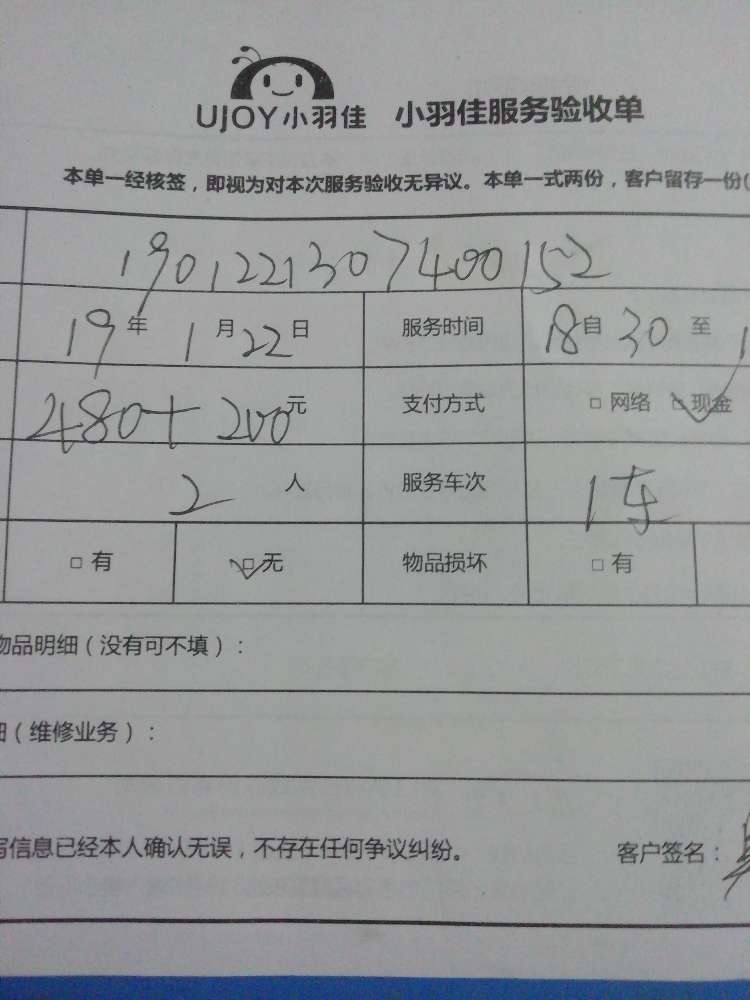 UJOY小羽佳 小羽佳服务验收单
本单一经核签，即视为对本次服务验收无异议。本单一式两份，客户留存一份(
1901221307400152
19年1月22日 服务时间 18自30至1
480+200元 支付方式 □网络 ☑现金
2人 服务车次 1车
□有 ☑无 物品损坏 □有
物品明细（没有可不填）：
细（维修业务）：
写信息已经本人确认无误，不存在任何争议纠纷。 客户签名：